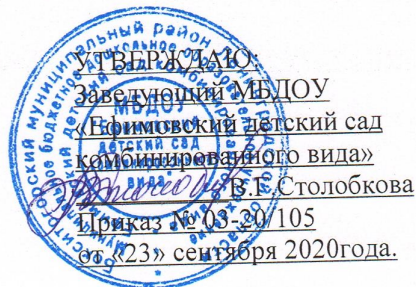 УТВЕРЖДАЮ:
Заведующий МБДОУ
«Ефимовский детский сад
комбинированного вида»
В.Г. Столобкова
Приказ № 03-20/105
от «23» сентября 2020года.
МБДОУ
детский сад
вида"